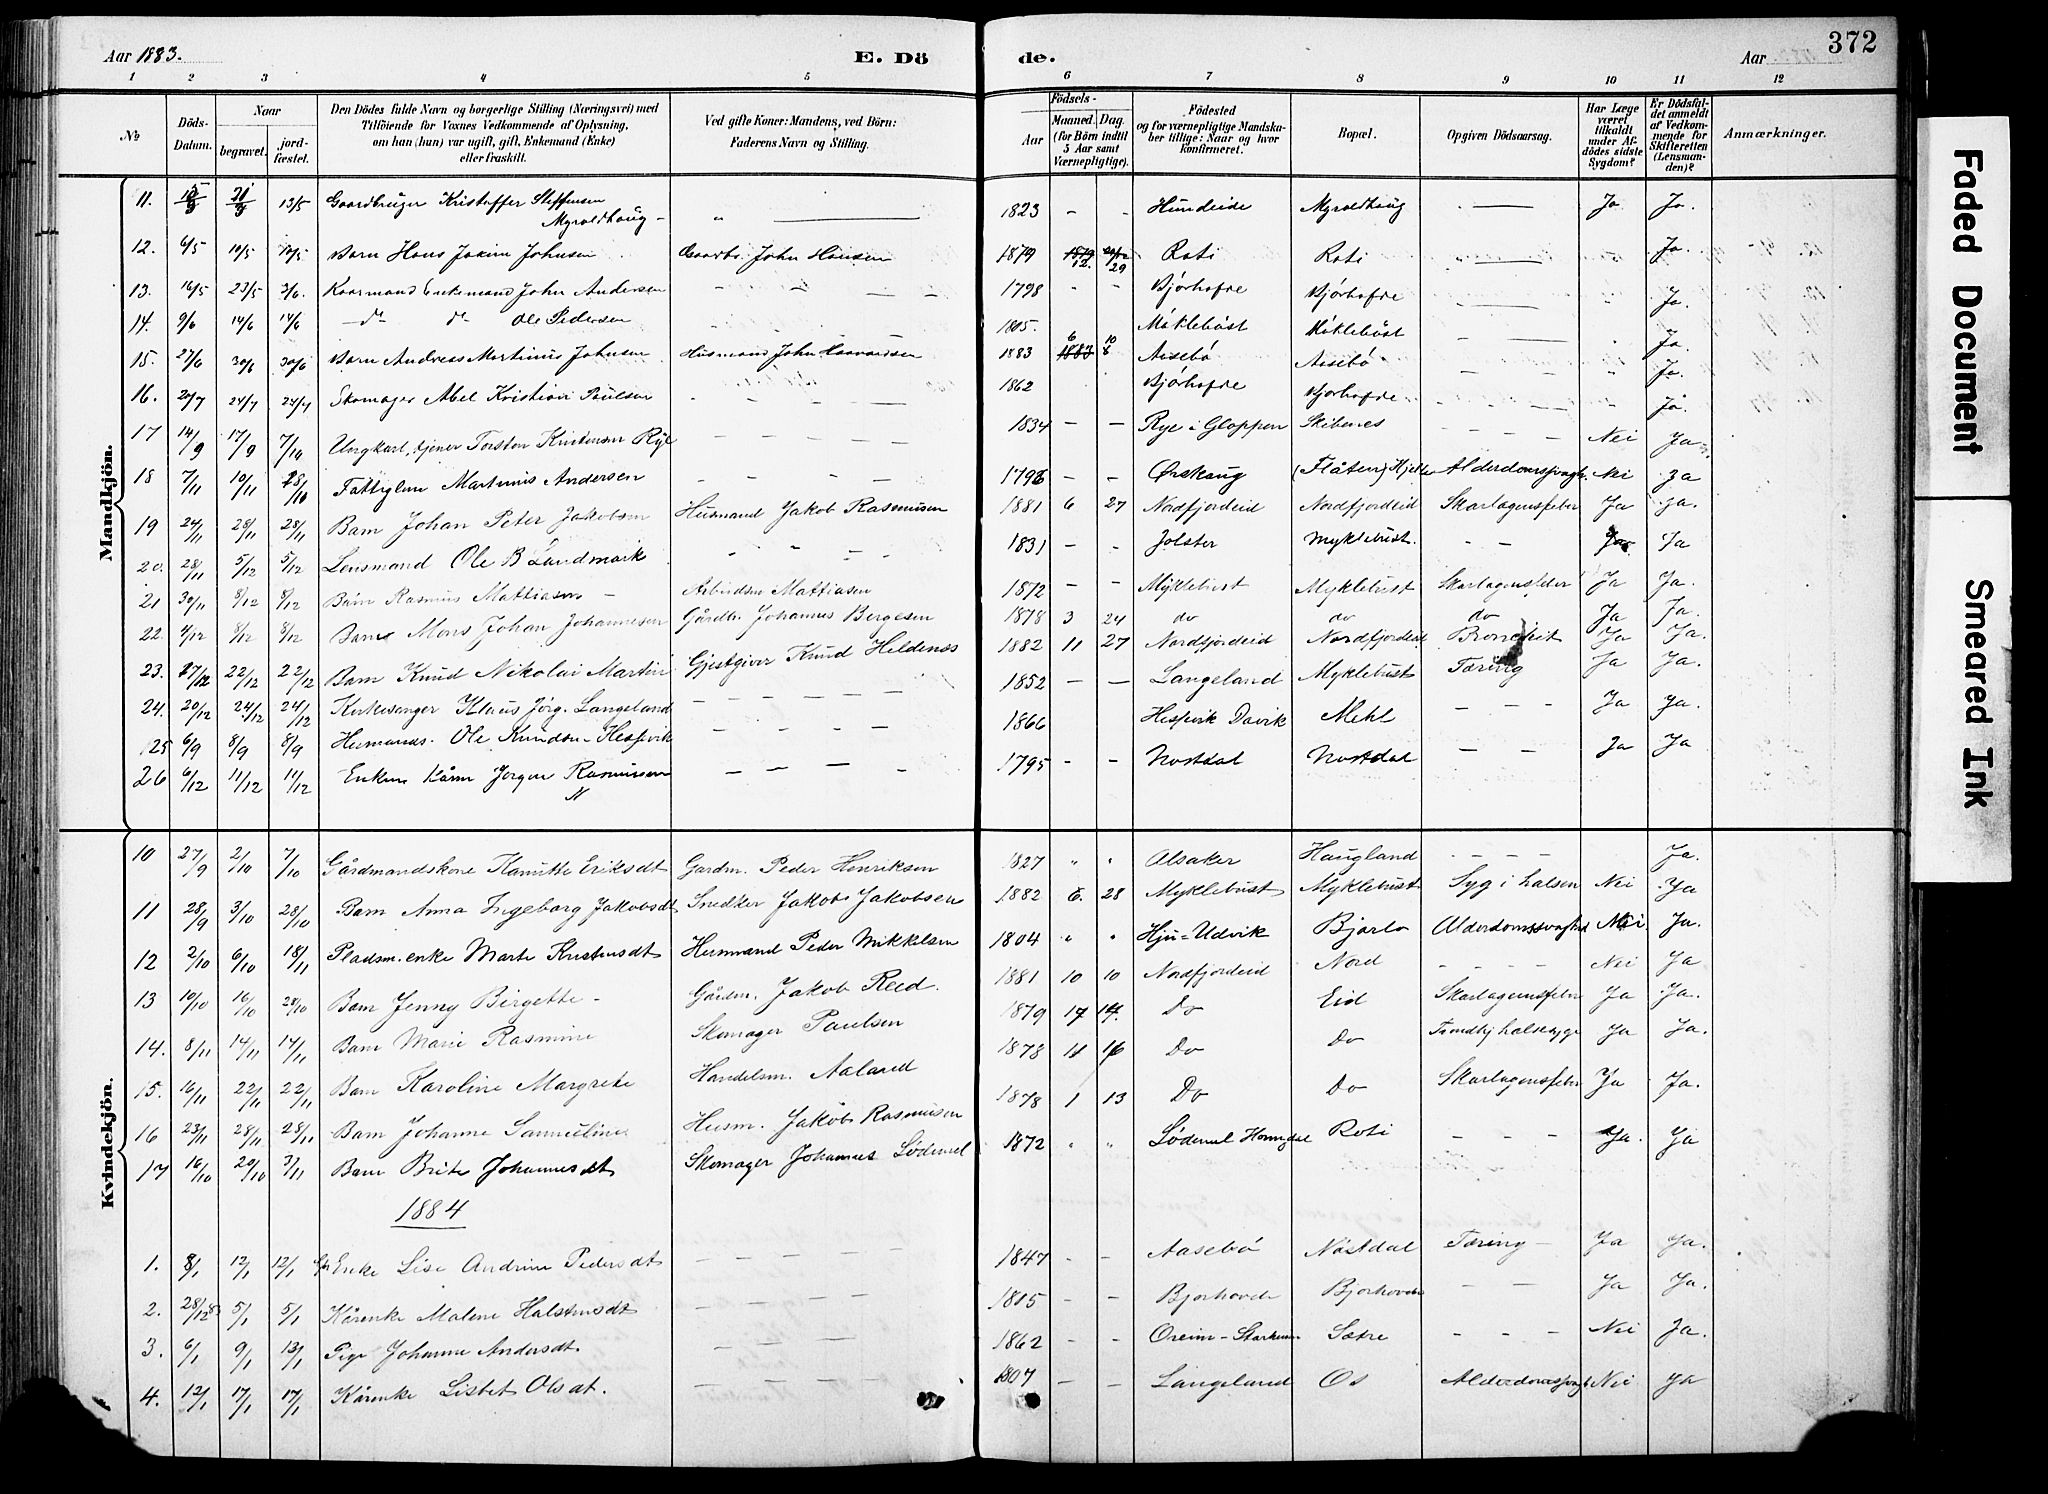 Aar 1883. E. Dö de. Aar 372
1 2 3 4 5 6 7 8 9 10 11 12
No Döds-Datum. Naar begravet. jord-fæstet. Den Dödes fulde Navn og borgerlige Stilling (Næringsvei) med Tilföiende for Voxnes Vedkommende af Oplysning, om han (hun) var ugift, gift, Enkemand (Enke) eller fraskilt. Ved gifte Koner: Mandens, ved Börn: Faderens Navn og Stilling. Födsels- Aar Maaned. Dag. (for Börn indtil 5 Aar samt Værnepligtige). Födested og for værnepligtige Mandskaber tillige: Naar og hvor konfirmeret. Bopæl. Opgiven Dödsaarsag. Har Læge været tilkaldt under Afdödes sidste Sygdom? Er Dödsfaldet anmeldt af Vedkommende for Skifteretten (Lensmanden)? Anmærkninger.
Mandkjön.
11. 13/5 Gaardbruger Kristoffer Steffensen Myroldhoug - " 1823 - - Hundeide Myroldhoug " Ja Ja.
12. 6/5 10/5 10/5 Barn Hans Joakim Johnsen Gaardbr. John Hansen 1879 12. 29 Roti Roti " Ja.
13. 16/5 23/5 3/6. Kaarmand Enkemand John Andersen - - - - 1798 - - Bjørhofde Bjørhofde Ja.
14. 9/6 14/6 14/6 - do do Ole Pedersen 1805. Mökleböst Möklebüst Ja.
15. 27/6 30/6 30/6 Barn Andreas Martinus Johnsen Husmand John Haavardsen 1883 6 10 Aasebö Aasebö Ja.
16. 20/7 24/7 24/7 Skomager Abel Kristian Paulsen - - - - 1862 Bjørhofde Bjorhofde Ja.
17 14/9 17/9 7/10 Ungkarl, tjener Torsten Kristensen Rye - - - - 1834 - - Rye i Gloppen Skibenes - - - - Nei Ja
18 7/11 10/11 28/10 Fattiglem Martinus Andersen - - - - 1796 - - Ørskaug (Flåten) Hjelle Alderdomssvagh. Nei Ja
19 24/11 28/11 28/11 Barn Johan Peter Jakobsen Husmand Jakob Rasmusen 1881 6 27 Nordfjordeid Nordfjordeid Skarlagensfeber Ja Ja.
20. 28/11 5/12 5/12 Lensmand Ole B Landmark - - - - 1831 - - Jolster Myklebust. - - Ja Ja
21 30/11 8/12 8/12 Barn Rasmus Mattiasen - Arbeidsm Mattiasen 1872 - - Myklebust Myklebust Skarlagensfeber Ja Ja.
22. 4/12 8/12 8/12 Barn Mons Johan Johannesen Gårdbr. Johannes Bergesen 1878 3 24 do do do Ja Ja.
23. 17/12 22/12 22/12 Barn Knud Nikolai Martin Gjestgiver Knud Heldenæs 1882 11 27 Nordfjordeid Nordfjordeid Bronchit Ja Ja.
24. 20/12 24/12 24/12 Kirkesanger Klaus Jörg. Langeland - - - - 1852 - - Langeland Myklebust Tæring Ja Ja.
25 6/9 8/9 8/9 Husmands. Ole Knudsen Hessevik - - - - 1866 Hessevik Davik Mehl - - - Ja Ja.
26 6/12 11/12 11/12 Enkem Kårm Jorgen Rasmussen N - - - - 1795 - - Nostdal Nostdal - - Ja Ja
Kvindekjön.
10 27/9 2/10 7/10 Gårdmandskone Kanutte Eriksdt Gardm. Peder Henriksen 1827 " " Alsaker Haugland - - - Ja.
11 28/9 3/10 28/10 Barn Anna Ingeborg Jakobsdt Snedker Jakob Jakobsen 1882 6. 28 Myklebust Myklebust Syg i halsen Nei Ja
12 2/10 6/10 18/11 Pladsm. enke Marte Kristensdt Husmand Peder Mikkelsen 1804 " " Hju=Udvik Bjorlo Alderdomssvaghed Nei. Ja.
13 10/10 16/10 28/10 Barn Jenny Birgette - Gårdm. Jakob Reed. 1881 10 10 Nordfjordeid Nord - - - - Nei Ja
14. 8/11 14/11 14/11 Barn Marie Rasmine Skomager Paulsen 1879 14. Do Eid Skarlagensfeber Ja Ja.
15. 16/11 22/11 22/11 Barn Karoline Margrete Handelsm. Aaland 1878 11 16 Do Do Trondhj halssyge Ja Ja.
16 23/11 28/11 28/11 Barn Johanne Samueline Husm. Jakob Rasmusen 1878 1 13 Do Do Skarlagensfeber Ja Ja.
17 16/10 20/10 3/11 Barn Brite Johannesdt Skomager Johannes Lödemel 1872 " " Lödemel Hornindal Roti - - - Ja. Ja
1884
1. 8/1 12/1 12/1 Enke Lise Andrine Pedersdt - - - - 1847 - - Aasebö Nöstdal Tæring - Ja Ja.
2. 28/12 5/1 5/1 Kårenke Malene Halstensdt - - - - 1805 - - Bjorhovde Bjorhovde - - Ja Ja.
3. 6/1 9/1 13/1 Pige Johanne Andersdt. - - - - 1862 - - Oreim - Starheim Sætre - - - Nei Ja.
4. 12/1 17/1 17/1 Kårenke Lisbet Olsdt. - - - - 1807 - - Langeland Os Alderdomssvagh Nei Ja
Faded Document
Smeared Ink